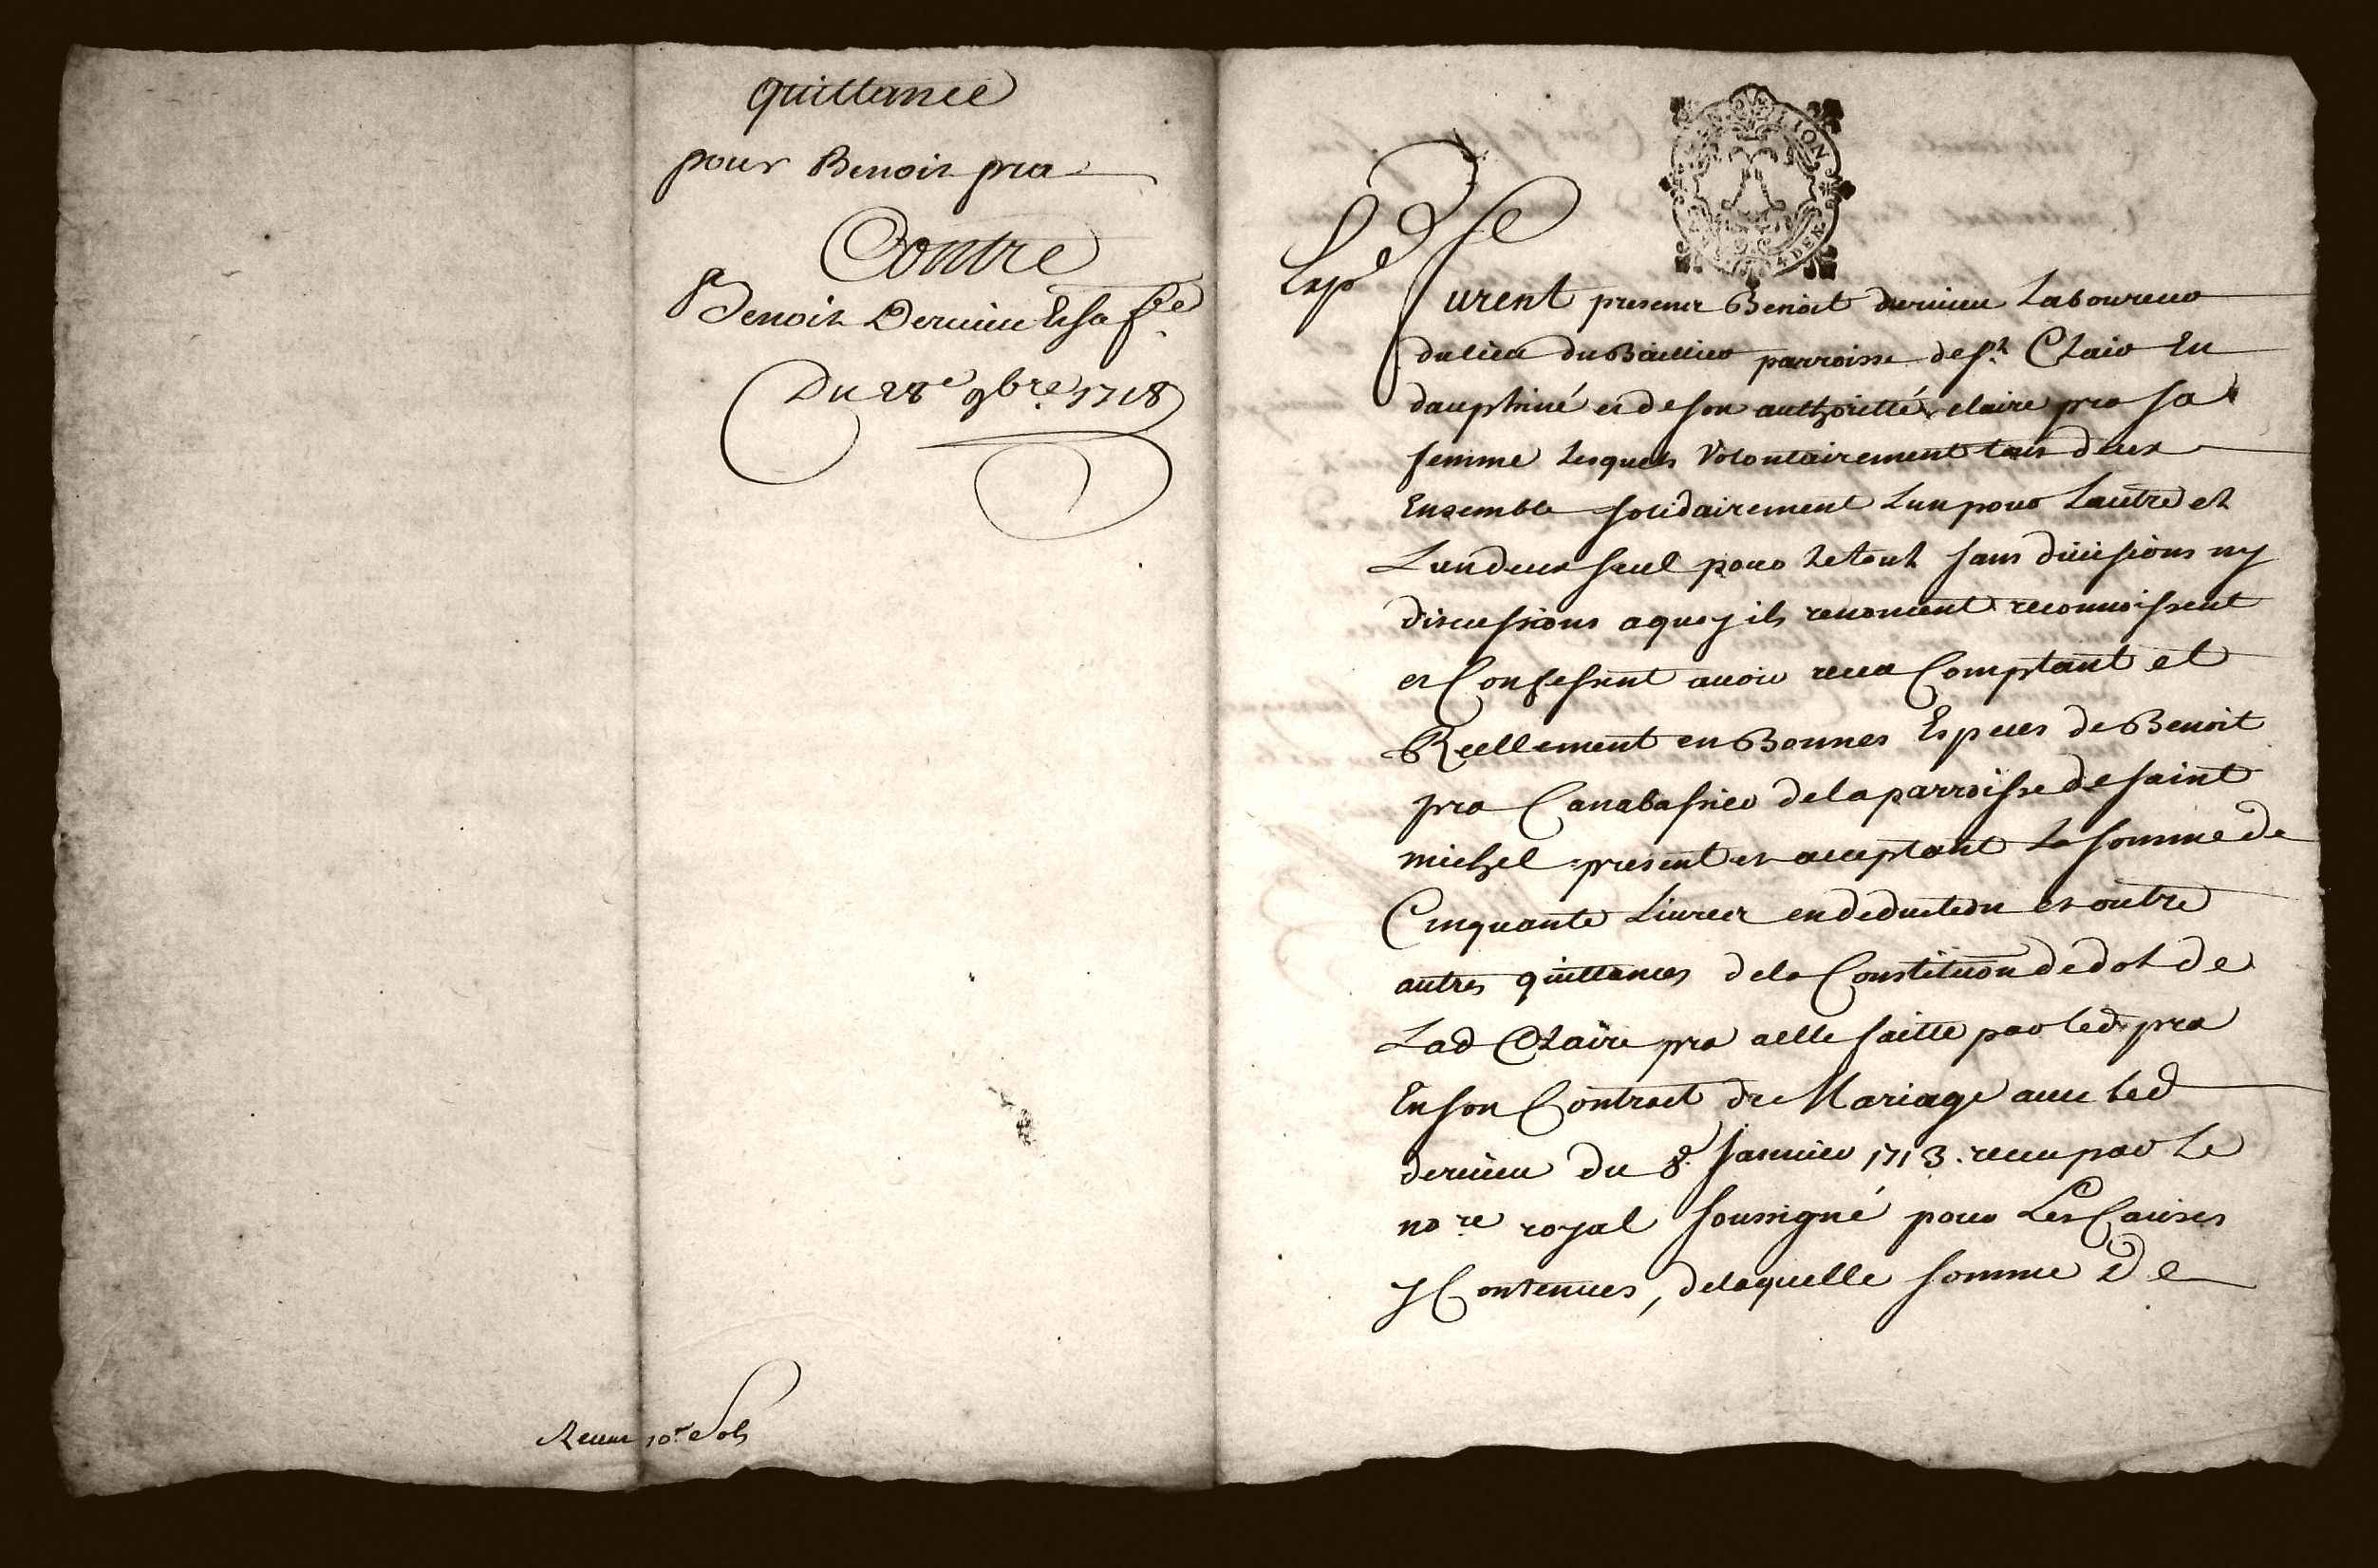 quittance
pour Benoit pra
Contre
Benoit Deruieu & sa fe
Du 28e 9bre 1718
Receu 10 sols
Exp
furent presens Benoit deruieu Laboureur
du lieu du parroisse de st Clair En
dauphiné et de son authoritté claire pra sa
femme Lesquels Volontairement tous deux
Ensemble solidairement Lun pour Lautre et
Lun deux seul pour Le tout sans diuisions ny
discussions a quoy ils renoncent reconnoissent
et Confessent auoir receu Comptant et
Reellement en Bonnes Especes de Benoit
pra Canabassier de la parroisse de saint
michel present et acceptant La somme de
Cinquante Liures en deduction et outre
autres quittances de la Constitution de dot de
Lad Claire pra a elle faitte par led pra
En son Contract de Mariage auec led
deruieu du 8e Januier 1713. receu par Le
nore royal soussigné pour Les Causes
y Contenues, de laquelle somme de